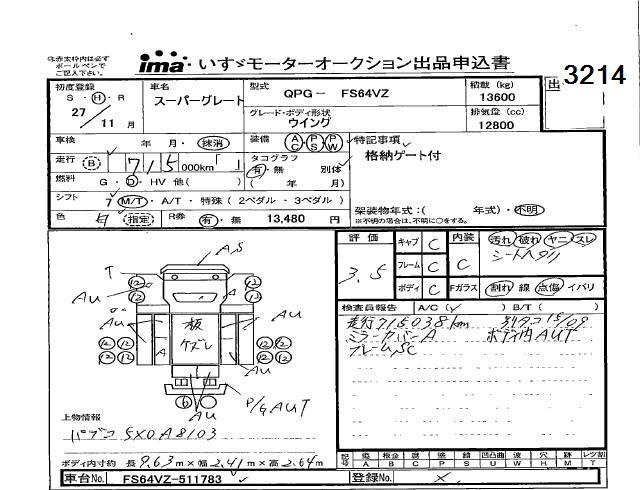 ※赤太枠内は必ず
ボールペンで
ご記入下さい。
ima いすゞモーターオークション出品申込書
出 3214
初度登録 S・H・R 27/11月
車名 スーパーグレート
型式 QPG- FS64VZ
グレード・ボディ形状 ウイング
積載 (kg) 13600
排気量 (cc) 12800
車検 年 月・抹消
装備 AC・PS・PW
特記事項
格納ゲート付
走行 (B) 715 000km「 」
タコグラフ 有・無 別体
( 年 月)
燃料 G・D・HV 他( )
シフト 7 M/T・A/T・特殊(2ペダル・3ペダル)
架装物年式:( 年式)・不明
※不明の場合は、不明に○をする。
色 白 指定 R券 有・無 13,480 円
評価 3.5
キャブ C
フレーム C
ボディ C
内装 C
Fガラス
汚れ 破れ ヤニ スレ
シートヘタリ
割れ 線 点傷 イバリ
検査員報告 A/C( ) B/T( )
走行715038km 別タコ 15/09
ミラーカバーA ボディ内AUT
フレームSC
A,S
T
AU
AU
AU
板
ケズレ
A
AU
AU
P/G AUT
上物情報
パブコ 5X0A8103
ボディ内寸約 長9.63m×幅2.41m×高2.64m
記号 A B C P S U W H M T
車台No. FS64VZ-511783
登録No. ×